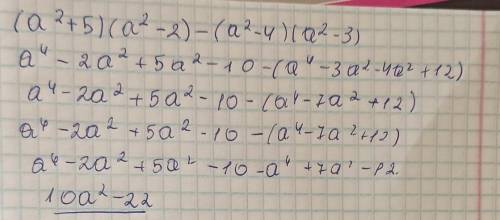 (a²+5)(a²-2)-(a²-4)(a²-3)
a⁴-2a²+5a²-10-(a⁴-3a²-4a²+12)
a⁴-2a²+5a²-10-(a⁴-7a²+12)
a⁴-2a²+5a²-10-(a⁴-7a²+12)
a⁴-2a²+5a²-10-a⁴+7a²-12.
10a²-22